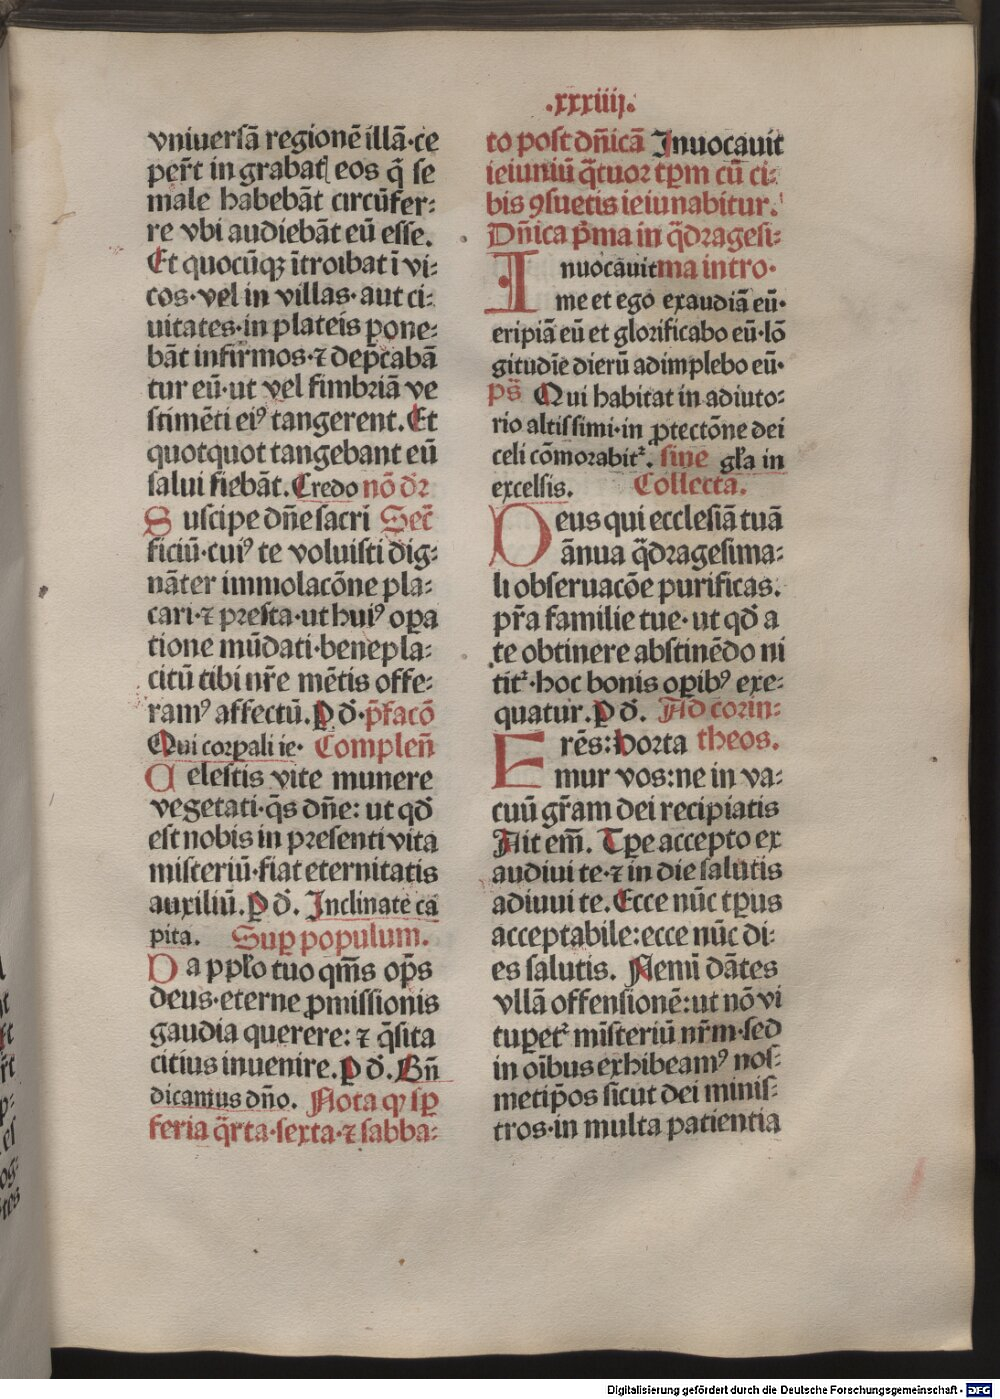 .xxxiiij.
vniuersā regionē illā·ce
per̄t in grabatꝭ eos q̄ se
male habebāt circūfer⸗
re vbi audiebāt eū esse.
Et quocūqꝫ ītroibat ī vi⸗
cos·vel in villas·aut ci⸗
uitates·in plateis pone⸗
bāt infirmos·⁊ dep̄cabā
tur eū·ut vel fimbriā ve
stimēti eiꝰ tangerent. Et
quotquot tangebant eū
salui fiebāt. Credo nō dr̄
Suscipe dn̄e sacri Sec̄
ficiū·cuiꝰ te voluisti dig⸗
nāter immolacōne pla⸗
cari·⁊ presta·ut huiꝰ oꝑa
tione mūdati·benepla⸗
citū tibi nr̄e mētis offe⸗
ramꝰ affectū. P d̄. p̄facō
Qui corꝑali ie· Complen̄
Celestis vite munere
vegetati·q̄s dn̄e: ut qd̄
est nobis in presenti vita
misteriū·fiat eternitatis
auxiliū. P d̄. Inclinate ca
pita. Suꝑ populum.
Da ppl̄o tuo qm̄s op̄s
deus·eterne ꝓmissionis
gaudia querere: ⁊ q̄sita
citius inuenire. P d̄. Bn̄
dicamus dn̄o. Nota ꝙ sꝑ
feria q̄rta·sexta·⁊ sabba⸗
to post dn̄icā Inuocauit
ieiuniū q̄tuor tꝑm cū ci⸗
bis ꝯsuetis ieiunabitur.
Dn̄ica p̄ma in q̄dragesi⸗
Inuocauit ma intro·
me et ego exaudiā eū·
eripiā eū et glorificabo eū·lō
gitudīe dierū adimplebo eū·
ps̄ Qui habitat in adiuto⸗
rio altissimi·in ꝓtectōne dei
celi cōmorabit᷑. sine gl̄a in
excelsis. Collecta.
Deus qui ecclesiā tuā
ānua q̄dragesima⸗
li obseruacōe purificas.
pr̄a familie tue·ut qd̄ a
te obtinere abstinēdo ni
tit᷑·hoc bonis oꝑibꝰ exe⸗
quatur. P d̄. Ad corin⸗
Frēs: Horta theos.
mur vos: ne in va⸗
cuū gr̄am dei recipiatis
Ait em̄. Tꝑe accepto ex
audiui te·⁊ in die salutis
adiuui te. Ecce nūc tꝑus
acceptabile: ecce nūc di⸗
es salutis. Nemī dātes
vllā offensionē: ut nō vi
tuꝑet᷑ mīsteriū nr̄m·sed
in oībus exhibeamꝰ nos⸗
metip̄os sicut dei minis⸗
tros·in multa patientia
Digitalisierung gefördert durch die Deutsche Forschungsgemeinschaft - DFG